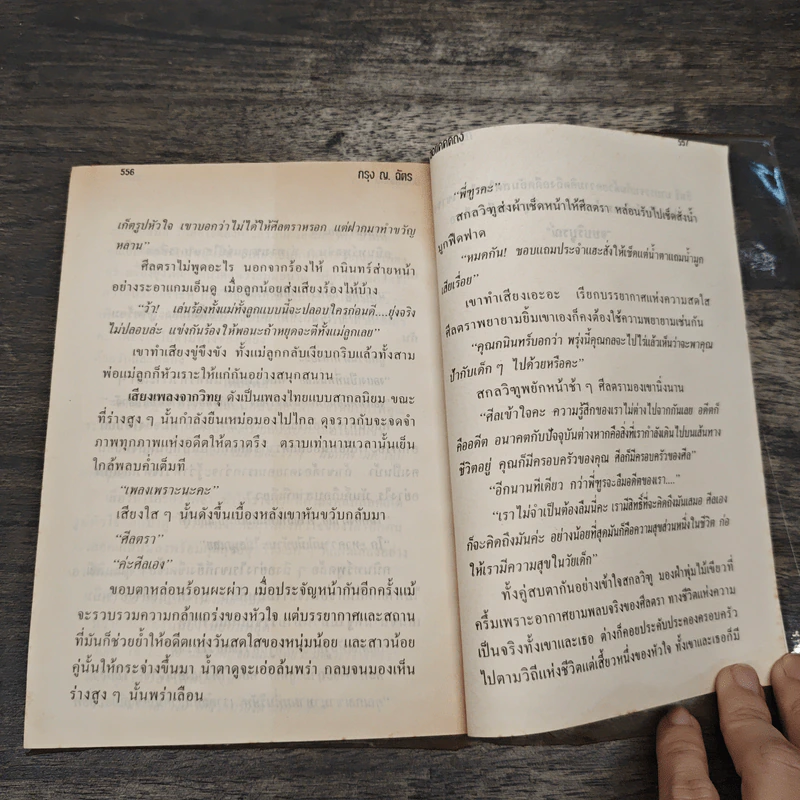 556
กรุง ญ. ฉัตร
เก็ตรูปหัวใจ เขาบอกว่าไม่ได้ให้ศีลตราหรอก แต่ฝากมาทำขวัญ
หลาน”
ศีลตราไม่พูดอะไร นอกจากร้องไห้ กนินทร์ส่ายหน้า
อย่างระอาแกมเอ็นดู เมื่อลูกน้อยส่งเสียงร้องไห้บ้าง
“ว้า! เล่นร้องทั้งแม่ทั้งลูกแบบนี้จะปลอบใครก่อนดี....ยุ่งจริง
ไม่ปลอบล่ะ แข่งกันร้องให้พอนะถ้าหยุดจะตีทั้งแม่ลูกเลย”
เขาทำเสียงขู่ขึงขัง ทั้งแม่ลูกกลับเงียบกริบแล้วทั้งสาม
พ่อแม่ลูกก็หัวเราะให้แก่กันอย่างสนุกสนาน
เสียงเพลงจากวิทยุ ดังเป็นเพลงไทยแบบสากลนิยม ขณะ
ที่ร่างสูง ๆ นั้นกำลังยืนเหม่อมองไปไกล ดุจราวกับจะจดจำ
ภาพทุกภาพแห่งอดีตให้ตราตรึง ตราบเท่านานเวลานั้นเย็น
ใกล้พลบค่ำเต็มที
“เพลงเพราะนะคะ”
เสียงใส ๆ นั้นดังขึ้นเบื้องหลังเขาหันขวับกลับมา
“ศีลตรา”
“ค่ะศีลเอง”
ขอบตาหล่อนร้อนผะผ่าว เมื่อประจัญหน้ากันอีกครั้งแม้
จะรวบรวมความกล้าแกร่งของหัวใจ แต่บรรยากาศและสถาน
ที่มันก็ช่วยย้ำให้อดีตแห่งวันสดใสของหนุ่มน้อย และสาวน้อย
คู่นั้นให้กระจ่างขึ้นมา น้ำตาดูจะเอ่อล้นพร่า กลบจนมองเห็น
ร่างสูง ๆ นั้นพร่าเลือน
557
“พี่ทูรคะ”
สกลวิฑูส่งผ้าเช็ดหน้าให้ศีลตรา หล่อนรับไปเช็ดสั่งน้ำ
มูกฟืดฟาด
“หมดกัน! ขอบแถมประจำแฮะสั่งให้เช็ดแต่น้ำตาแถมน้ำมูก
เสียเรื่อย”
เขาทำเสียงเอะอะ เรียกบรรยากาศแห่งความสดใส
ศีลตราพยายามยิ้มเขาเองก็คงต้องใช้ความพยายามเช่นกัน
“คุณกนินทร์บอกว่า พรุ่งนี้คุณกลจะไปไร่แล้วเห็นว่าจะพาคุณ
ป้ากับเด็ก ๆ ไปด้วยหรือคะ”
สกลวิฑูพยักหน้าช้า ๆ ศีลตรามองเขานิ่งนาน
“ศีลเข้าใจคะ ความรู้สึกของเราไม่ต่างไปจากกันเลย อดีตก็
คืออดีต อนาคตกับปัจจุบันต่างหากคือสิ่งที่เรากำลังเดินไปบนเส้นทาง
ชีวิตอยู่ คุณก็มีครอบครัวของคุณ ศีลก็มีครอบครัวของศีล”
“อีกนานทีเดียว กว่าพี่ทูรจะลืมอดีตของเรา....”
“เราไม่จำเป็นต้องลืมนี่คะ เรามีสิทธิ์ที่จะคิดถึงมันเสมอ ศีลเอง
ก็จะคิดถึงมันค่ะ อย่างน้อยที่สุดมันก็คือความสุขส่วนหนึ่งในชีวิต ก่อ
ให้เรามีความสุขในวัยเด็ก”
ทั้งคู่สบตากันอย่างเข้าใจสกลวิฑู มองฝ่าพุ่มไม้เขียวที่
ครึ้มเพราะอากาศยามพลบจริงของศีลตรา ทางชีวิตแห่งความ
เป็นจริงทั้งเขาและเธอ ต่างก็คอยประคับประคองครอบครัว
ไปตามวิถีแห่งชีวิตแต่เสี้ยวหนึ่งของหัวใจ ทั้งเขาและเธอก็มี